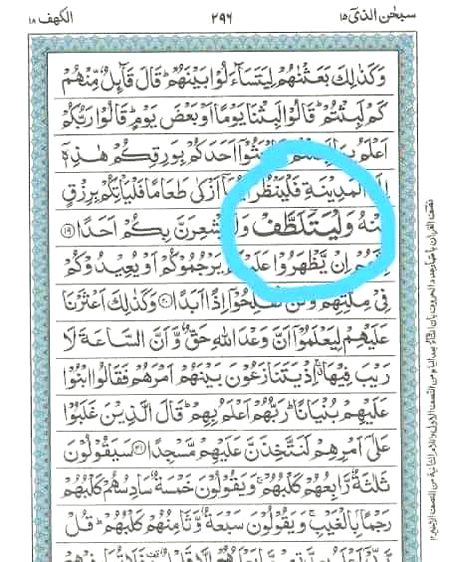 سبحٰن الذیۤ ۱۵
۲۹۶
الكهف ۱۸
وَكَذٰلِكَ بَعَثْنٰهُمْ لِيَتَسَآءَلُوْا بَيْنَهُمْ ؕ قَالَ قَآئِلٌ مِّنْهُمْ
كَمْ لَبِثْتُمْ ؕ قَالُوْا لَبِثْنَا يَوْمًا اَوْ بَعْضَ يَوْمٍ ؕ قَالُوْا رَبُّكُمْ
اَعْلَمُ اَحَدَكُمْ بِوَرِقِكُمْ هٰذِهٖۤ
الْمَدِيْنَةِ فَلْيَنْظُرْ اَزْكٰى طَعَامًا فَلْيَاْتِكُمْ بِرِزْقٍ
مِّنْهُ وَلْيَتَلَطَّفْ بِكُمْ اَحَدًا ﴿۱۹﴾
اِنْ يَّظْهَرُوْا عَلَيْكُمْ يَرْجُمُوْكُمْ اَوْ يُعِيْدُوْكُمْ
فِيْ مِلَّتِهِمْ وَلَنْ تُفْلِحُوْۤا اِذًا اَبَدًا ﴿۲۰﴾ وَكَذٰلِكَ اَعْثَرْنَا
عَلَيْهِمْ لِيَعْلَمُوْۤا اَنَّ وَعْدَ اللّٰهِ حَقٌّ وَّاَنَّ السَّاعَةَ لَا
رَيْبَ فِيْهَا ۚ اِذْ يَتَنَازَعُوْنَ بَيْنَهُمْ اَمْرَهُمْ فَقَالُوا ابْنُوْا
عَلَيْهِمْ بُنْيَانًا ؕ رَبُّهُمْ اَعْلَمُ بِهِمْ ؕ قَالَ الَّذِيْنَ غَلَبُوْا
عَلٰۤى اَمْرِهِمْ لَنَتَّخِذَنَّ عَلَيْهِمْ مَّسْجِدًا ﴿۲۱﴾ سَيَقُوْلُوْنَ
ثَلٰثَةٌ رَّابِعُهُمْ كَلْبُهُمْ ۚ وَيَقُوْلُوْنَ خَمْسَةٌ سَادِسُهُمْ كَلْبُهُمْ
رَجْمًۢا بِالْغَيْبِ ۚ وَيَقُوْلُوْنَ سَبْعَةٌ وَّثَامِنُهُمْ كَلْبُهُمْ ؕ قُلْ